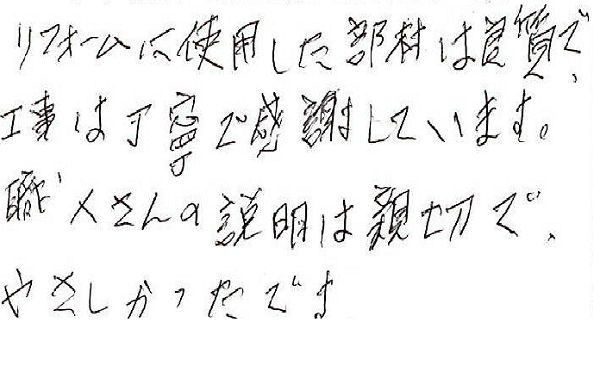 リフォームに使用した部材は良質で、
工事は丁寧で感謝しています。
職人さんの説明は親切で、
やさしかったです